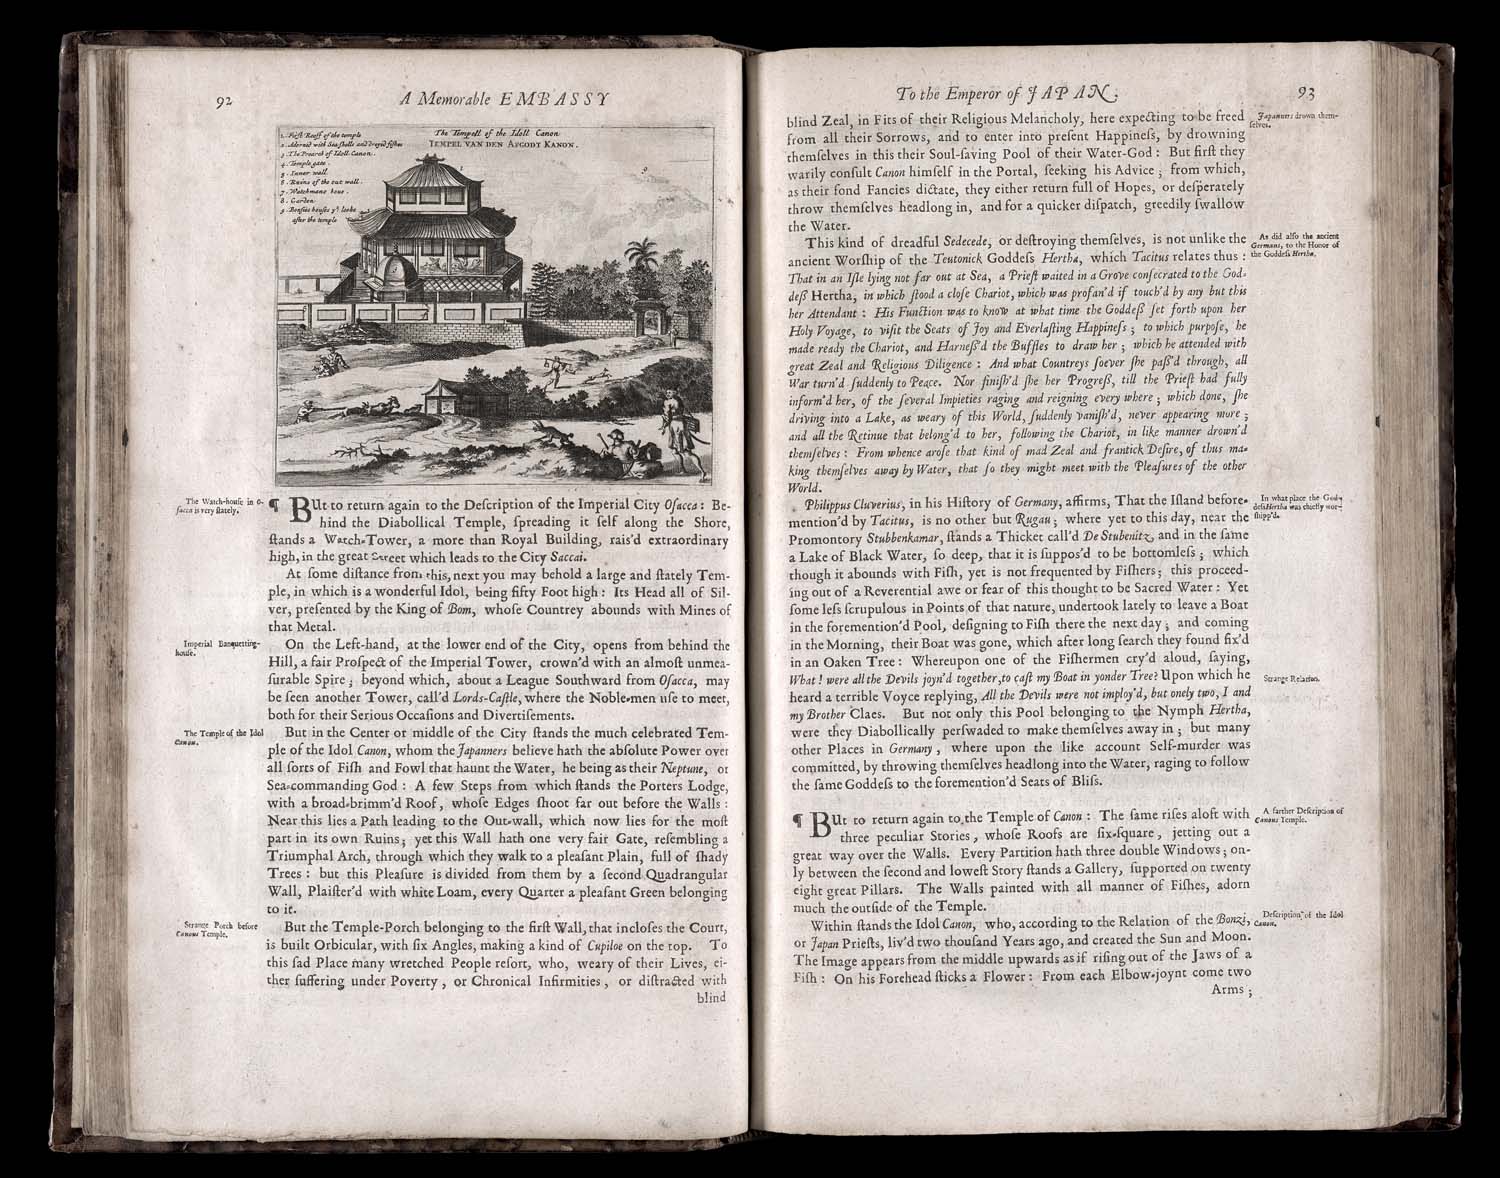 92
A Memorable EMBASSY
1. First Rooff of the temple
2. Adorned with Sea shells and dreyed fishes
3. The Proarch of Idoll Canon.
4. Temple gate.
5. Inner wall.
6. Ruins of the out wall.
7. Watchmans hous.
8. Garden
9. Bonsies houses yt. looks
after the temple
The Tempell of the Idoll Canon
TEMPEL VAN DEN AFGODT KANON.
The Watch-house in O-
sacca is very stately.
¶ BUt to return again to the Deſcription of the Imperial City Oſacca: Be-
hind the Diabollical Temple, ſpreading it ſelf along the Shore,
ſtands a Watch-Tower, a more than Royal Building, rais'd extraordinary
high, in the great Street which leads to the City Saccai.
At ſome diſtance from this, next you may behold a large and ſtately Tem-
ple, in which is a wonderful Idol, being fifty Foot high: Its Head all of Sil-
ver, preſented by the King of Bom, whoſe Countrey abounds with Mines of
that Metal.
Imperial Banquetting-
houſe.
On the Left-hand, at the lower end of the City, opens from behind the
Hill, a fair Proſpect of the Imperial Tower, crown'd with an almoſt unmea-
ſurable Spire; beyond which, about a League Southward from Oſacca, may
be ſeen another Tower, call'd Lords-Caſtle, where the Noble-men uſe to meet,
both for their Serious Occaſions and Divertiſements.
The Temple of the Idol
Canon.
But in the Center or middle of the City ſtands the much celebrated Tem-
ple of the Idol Canon, whom the Japanners believe hath the abſolute Power over
all ſorts of Fiſh and Fowl that haunt the Water, he being as their Neptune, or
Sea-commanding God: A few Steps from which ſtands the Porters Lodge,
with a broad-brimm'd Roof, whoſe Edges ſhoot far out before the Walls:
Near this lies a Path leading to the Out-wall, which now lies for the moſt
part in its own Ruins; yet this Wall hath one very fair Gate, reſembling a
Triumphal Arch, through which they walk to a pleaſant Plain, full of ſhady
Trees: but this Pleaſure is divided from them by a ſecond Quadrangular
Wall, Plaiſter'd with white Loam, every Quarter a pleaſant Green belonging
to it.
Strange Porch before
Canons Temple.
But the Temple-Porch belonging to the firſt Wall, that incloſes the Court,
is built Orbicular, with ſix Angles, making a kind of Cupiloe on the top. To
this ſad Place many wretched People reſort, who, weary of their Lives, ei-
ther ſuffering under Poverty, or Chronical Infirmities, or diſtracted with
blind
To the Emperor of JAPAN.
93
blind Zeal, in Fits of their Religious Melancholy, here expecting to be freed
from all their Sorrows, and to enter into preſent Happineſs, by drowning
themſelves in this their Soul-ſaving Pool of their Water-God: But firſt they
warily conſult Canon himſelf in the Portal, ſeeking his Advice; from which,
as their fond Fancies dictate, they either return full of Hopes, or deſperately
throw themſelves headlong in, and for a quicker diſpatch, greedily ſwallow
the Water.
Japanners drown them-
ſelves.
This kind of dreadful Sedecede, or deſtroying themſelves, is not unlike the
ancient Worſhip of the Teutonick Goddeſs Hertha, which Tacitus relates thus:
That in an Iſle lying not far out at Sea, a Prieſt waited in a Grove conſecrated to the God-
deſs Hertha, in which ſtood a cloſe Chariot, which was profan'd if touch'd by any but this
her Attendant: His Function was to know at what time the Goddeſs ſet forth upon her
Holy Voyage, to viſit the Seats of Joy and Everlaſting Happineſs; to which purpoſe, he
made ready the Chariot, and Harneſs'd the Buffles to draw her; which he attended with
great Zeal and Religious Diligence: And what Countreys ſoever ſhe paſs'd through, all
War turn'd ſuddenly to Peace. Nor finiſh'd ſhe her Progreſs, till the Prieſt had fully
inform'd her, of the ſeveral Impieties raging and reigning every where; which done, ſhe
driving into a Lake, as weary of this World, ſuddenly vaniſh'd, never appearing more;
and all the Retinue that belong'd to her, following the Chariot, in like manner drown'd
themſelves: From whence aroſe that kind of mad Zeal and frantick Deſire, of thus ma-
king themſelves away by Water, that ſo they might meet with the Pleaſures of the other
World.
As did alſo the ancient
Germans, to the Honor of
the Goddeſs Hertha.
Philippus Cluverius, in his Hiſtory of Germany, affirms, That the Iſland before-
mention'd by Tacitus, is no other but Rugau; where yet to this day, near the
Promontory Stubbenkamar, ſtands a Thicket call'd De Stubenitz, and in the ſame
a Lake of Black Water, ſo deep, that it is ſuppos'd to be bottomleſs; which
though it abounds with Fiſh, yet is not frequented by Fiſhers; this proceed-
ing out of a Reverential awe or fear of this thought to be Sacred Water: Yet
ſome leſs ſcrupulous in Points of that nature, undertook lately to leave a Boat
in the foremention'd Pool, deſigning to Fiſh there the next day; and coming
in the Morning, their Boat was gone, which after long ſearch they found fix'd
in an Oaken Tree: Whereupon one of the Fiſhermen cry'd aloud, ſaying,
What! were all the Devils joyn'd together, to caſt my Boat in yonder Tree? Upon which he
heard a terrible Voyce replying, All the Devils were not imploy'd, but onely two, I and
my Brother Claes. But not only this Pool belonging to the Nymph Hertha,
were they Diabollically perſwaded to make themſelves away in; but many
other Places in Germany, where upon the like account Self-murder was
committed, by throwing themſelves headlong into the Water, raging to follow
the ſame Goddeſs to the foremention'd Seats of Bliſs.
In what place the God-
deſs Hertha was chiefly wor-
ſhipp'd.
Strange Relation.
¶ BUt to return again to the Temple of Canon: The ſame riſes aloft with
three peculiar Stories, whoſe Roofs are ſix-ſquare, jetting out a
great way over the Walls. Every Partition hath three double Windows; on-
ly between the ſecond and loweſt Story ſtands a Gallery, ſupported on twenty
eight great Pillars. The Walls painted with all manner of Fiſhes, adorn
much the outſide of the Temple.
A farther Deſcription of
Canons Temple.
Within ſtands the Idol Canon, who, according to the Relation of the Bonzi,
or Japan Prieſts, liv'd two thouſand Years ago, and created the Sun and Moon.
The Image appears from the middle upwards as if riſing out of the Jaws of a
Fiſh: On his Forehead ſticks a Flower: From each Elbow-joynt come two
Arms;
Deſcription of the Idol
Canon.